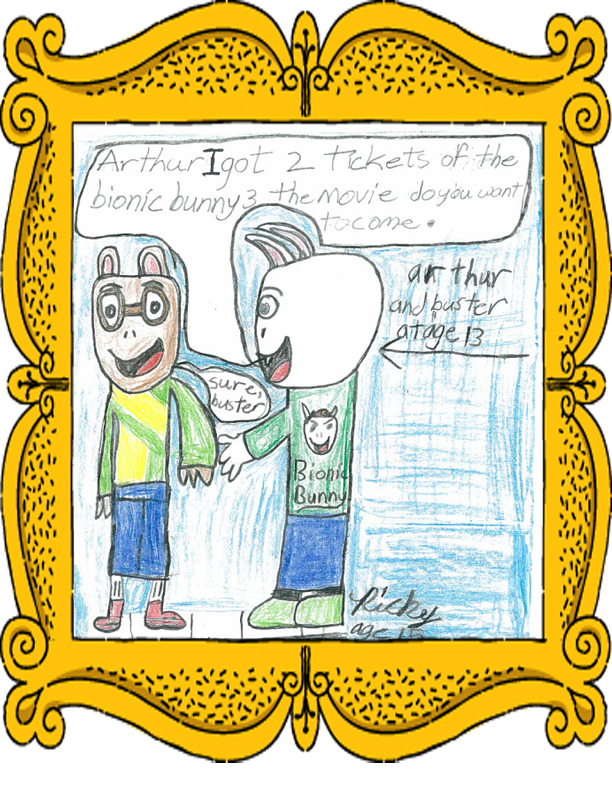 Arthur I got 2 tickets of the
bionic bunny 3 the movie do you want
to come.
arthur
and buster
at age 13
sure,
buster
Bionic
Bunny
Ricky
age 15